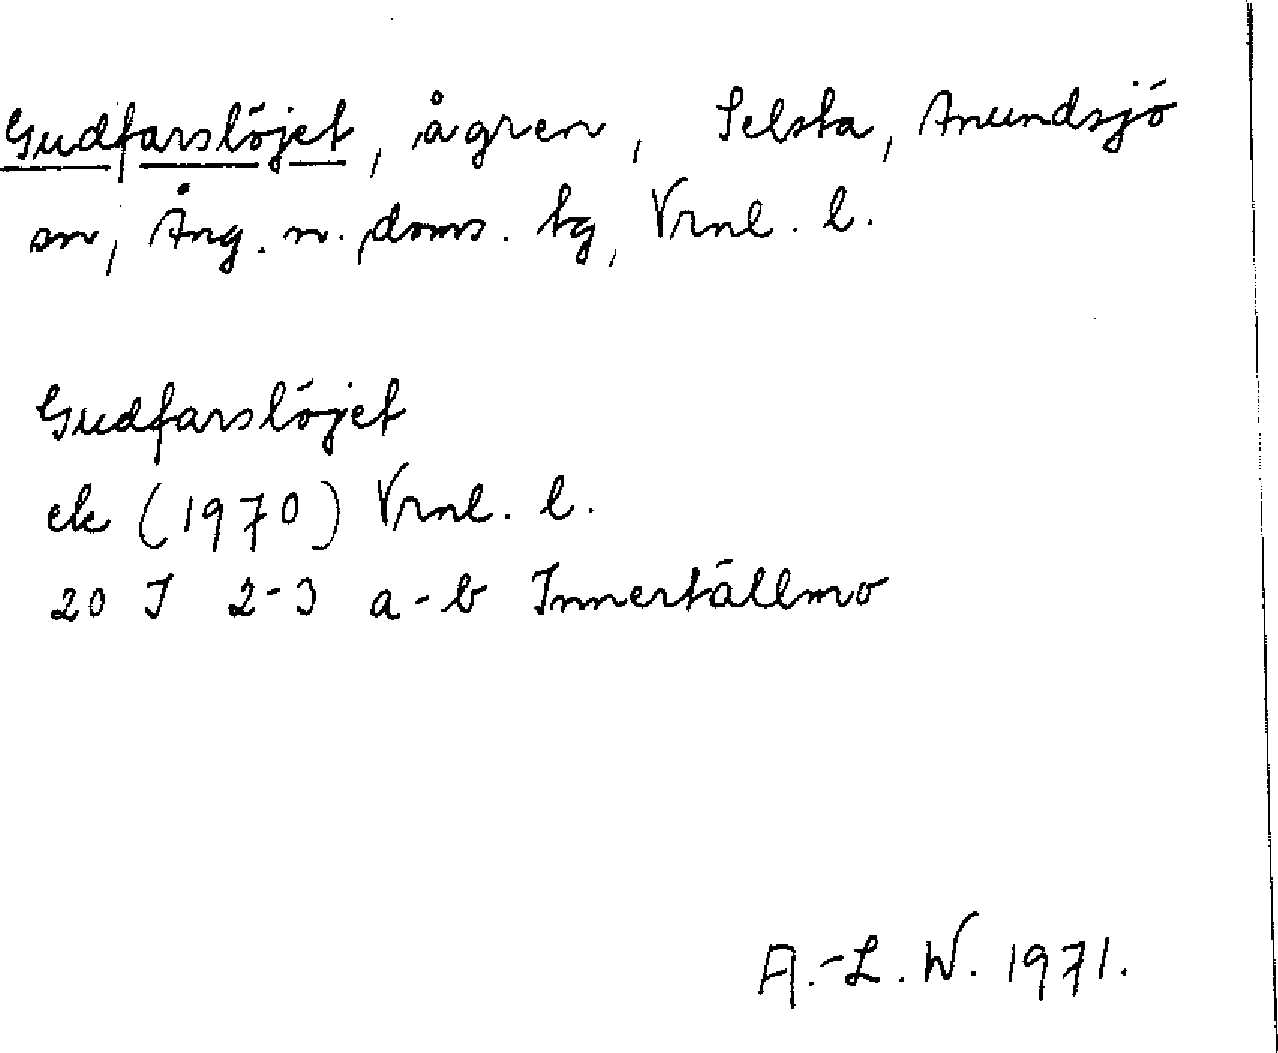 Gudfarslöjet, ågren, Selsta, Anundsjö
sn, Ång. n. doms. tg, Vrnl. l.
Gudfarslöjet
ek (1970) Vrnl. l.
20 I 2-3 a-b Innertällmo
A.-L. W. 1971.